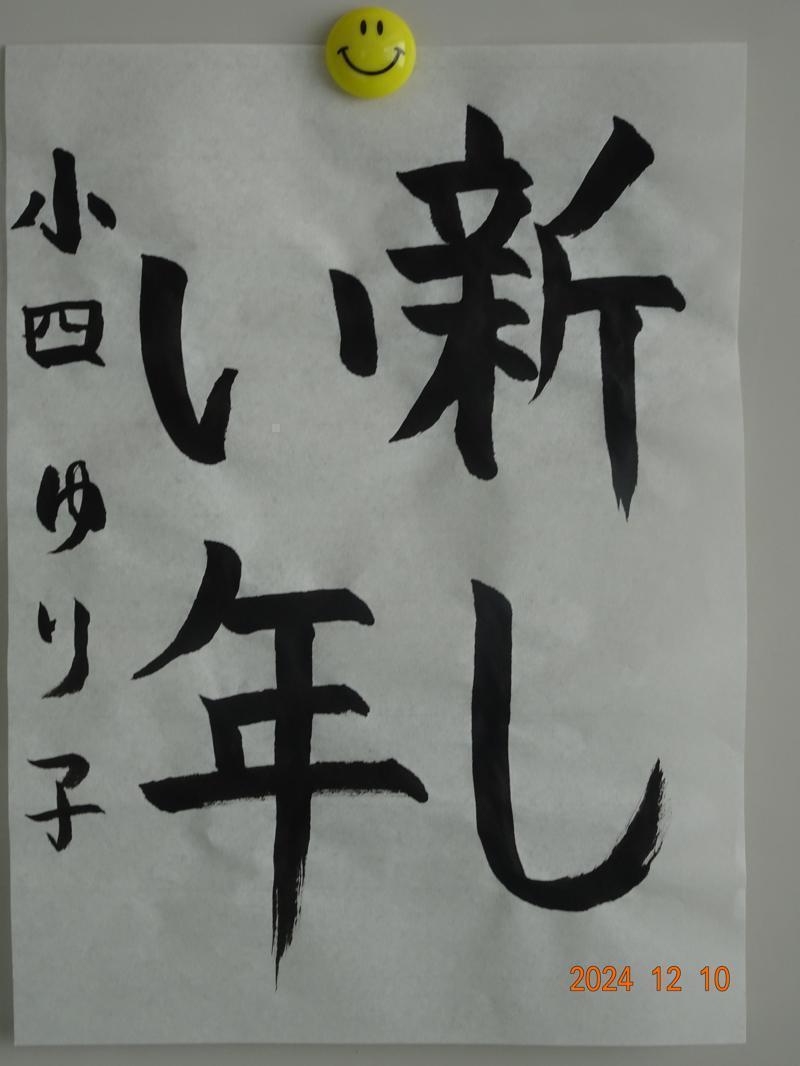 新し
い年
小四 ゆり子
2024 12 10